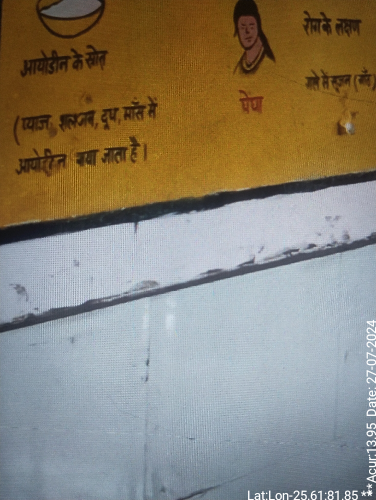 आयोडीन के स्रोत
(प्याज, शलजम, दूध, माँस में
आयोडीन पाया जाता है।
घेंघा
रोग के लक्षण
गले में सूजन (गाँठ)
Lat:Lon-25.61:81.85 ***Acur:13.95 Date: 27-07-2024